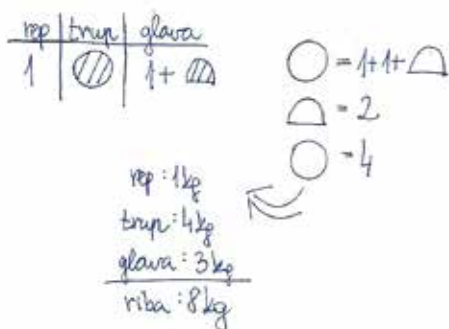 rep | trup | glava
1 | | 1 +
= 1+1+
= 2
= 4
rep : 1kg
trup : 4kg
glava : 3kg
riba : 8kg